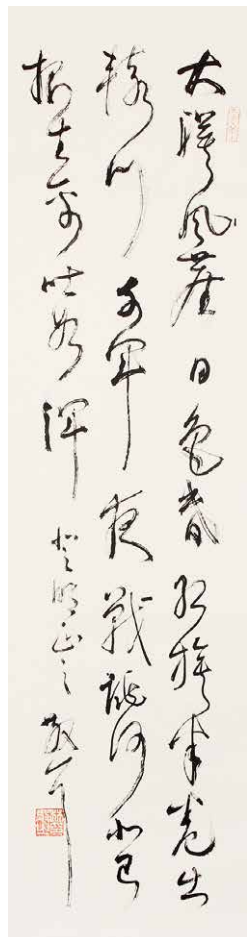 大漠風塵日色昏紅旗半卷出
轅門前軍夜戰洮河北已
報生擒吐谷渾 正之